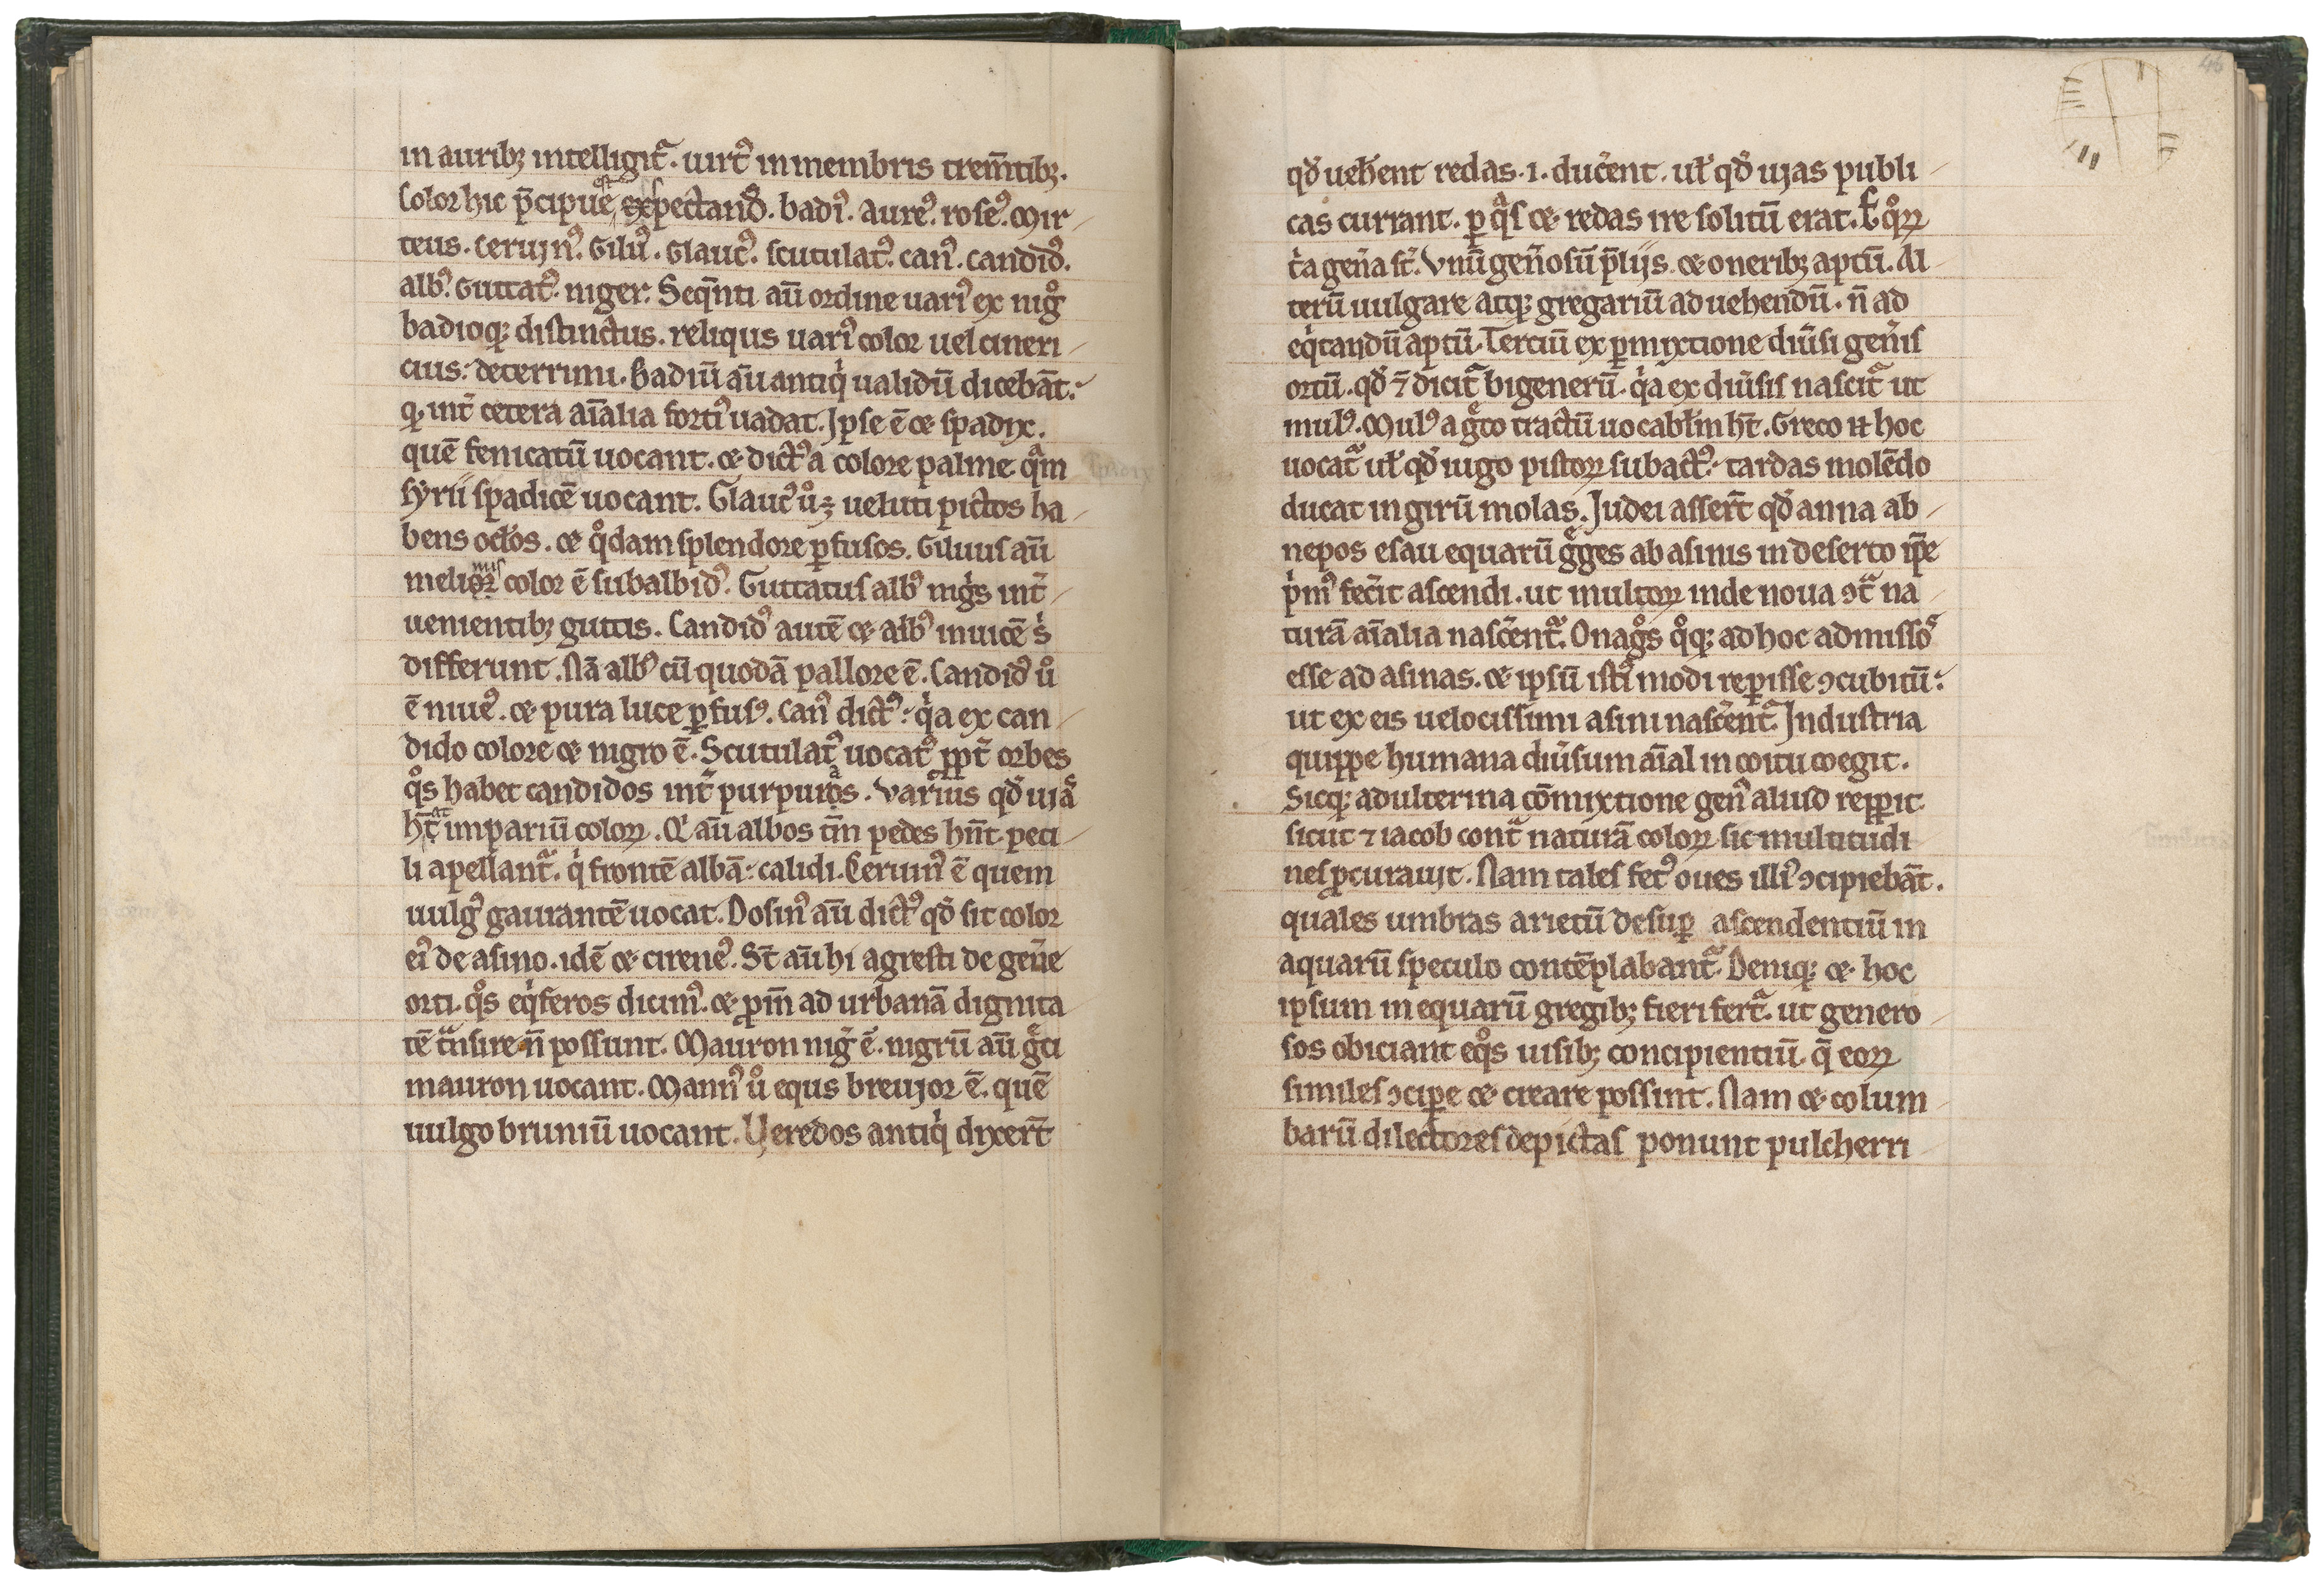 in aurib; intelligit᷑. uirtꝰ in membris trem̄tib;.
Color hic p̄cipue ē expectandꝰ. badiꝰ. aureꝰ. roseꝰ. Mir
teus. Ceruinꝰ. Giluꝰ. Glaucꝰ. scutulatꝰ. canꝰ. candidꝰ.
albꝰ. Guttatꝰ. niger. Seq̄nti aū ordine uariꝰ ex nigͦ
badioq; distinctus. reliqus uariꝰ color uel cineri
cius: deterrimi. Badiū aū antiqͥ ualidū dicebāt:
q; int᷑ cetera aīalia fortiꝰ uadat. Ipse ē ⁊ spadix.
quē fenicatū uocant. ⁊ dictꝰ a colore palme qᷓm
syrii spadicē uocant. Glaucꝰ uͦ ē ueluti pictos ha
bens oclos. ⁊ qͦdam splendore ꝑfusos. Giluus aū
melinꝰ color ē subalbidꝰ. Guttatus albꝰ nigͥs int᷑
uenientib; guttis. Candidꝰ autē ⁊ albꝰ inuicē sͥ
differunt. Nā albꝰ cū quodā pallore ē. Candidꝰ uͦ
ē niueꝰ. ⁊ pura luce ꝑfusꝰ. Canꝰ dictꝰ: qͥa ex can
dido colore ⁊ nigro ē. Scutulatꝰ uocatꝰ ꝓpt᷑ orbes
qͦs habet candidos int᷑ purpuras. Varius qđ uiaꝰ
h̄at impariū coloꝝ. Qͥ aū albos tm̄ pedes hn̄t. peti
li apellant᷑. qͥ frontē albā: calidi. Ceruinꝰ ē quem
uulgꝰ gaurantē uocat. Dosinꝰ aū dictꝰ qđ sit color
eiꝰ de asino. idē ⁊ cireneꝰ. St̄ aū hi agresti de gen̄e
orti. qͦs eqͥferos dicimꝰ. ⁊ ꝓīn ad urbanā dignita
tē tᷓnsire n̄ possunt. Mauron nigͬ ē. nigrū aū gͤci
mauron uocant. Mannꝰ uͦ equs breuior ē. quē
uulgo bruniū uocant. Veredos antiqͥ dixer̄t
qđ uehent redas. i. ducerent. ul̄ qđ uias publi
cas currant. ꝑ qᷓs ⁊ redas ire solitū erat. Eqͦꝝ
tͥa gen̄a st̄. Vnū gen̄osū p̄liis ⁊ onerib; aptū. Al
terū uulgare atq; gregariū ad uehendū. n̄ ad
eqͥtandū aptū. Terciū ex ꝑmixtione diūsi gen̄is
ortū. qđ ⁊ dicit᷑ bigenerū. qͥa ex diūsis nascit᷑ ut
mulꝰ. Mulꝰ a gͤco tractū uocablm̄ h̄t. Greco ñ hoc
uocat᷑ ul̄ qđ iugo pistoꝝ subactꝰ: tardas molēdo
ducat in girū molas. Iudei assert̄ qđ anna ab
nepos esau equarū gͤges ab asinis in deserto ip̄e
pͥmꝰ fecit ascendi. ut multoꝝ inde noua ꝯt᷑ na
turā aīalia nascent᷑. Onagͦs qͦq; ad hoc admissoˢ
esse ad asinas. ⁊ ipsū istiꝰmodi reꝑisse ꝯcubitū:
ut ex eis uelocissimi asini nascent᷑. Industria
quippe humana diūsum aīal in coitu coegit.
Sicq; adulterina cōmixtione genꝰ aliud repꝑit.
sicut ⁊ iacob cont᷑ naturā coloꝝ sic multitudi
nes ꝓcurauit. Nam tales fetꝰ oues illiꝰ ꝯcipiebāt.
quales umbras arietū desuꝑ ascendentiū in
aquarū speculo contēplabant᷑. Deniq; ⁊ hoc
ipsum in equarū gregib; fieri fert᷑. ut genero
sos obiciant eqͦs uisib; concipientiū. q̄ eoꝝ
similes ꝯciꝑe ⁊ creare possint. Nam ⁊ colum
barū dilectores depictas ponunt pulcherri